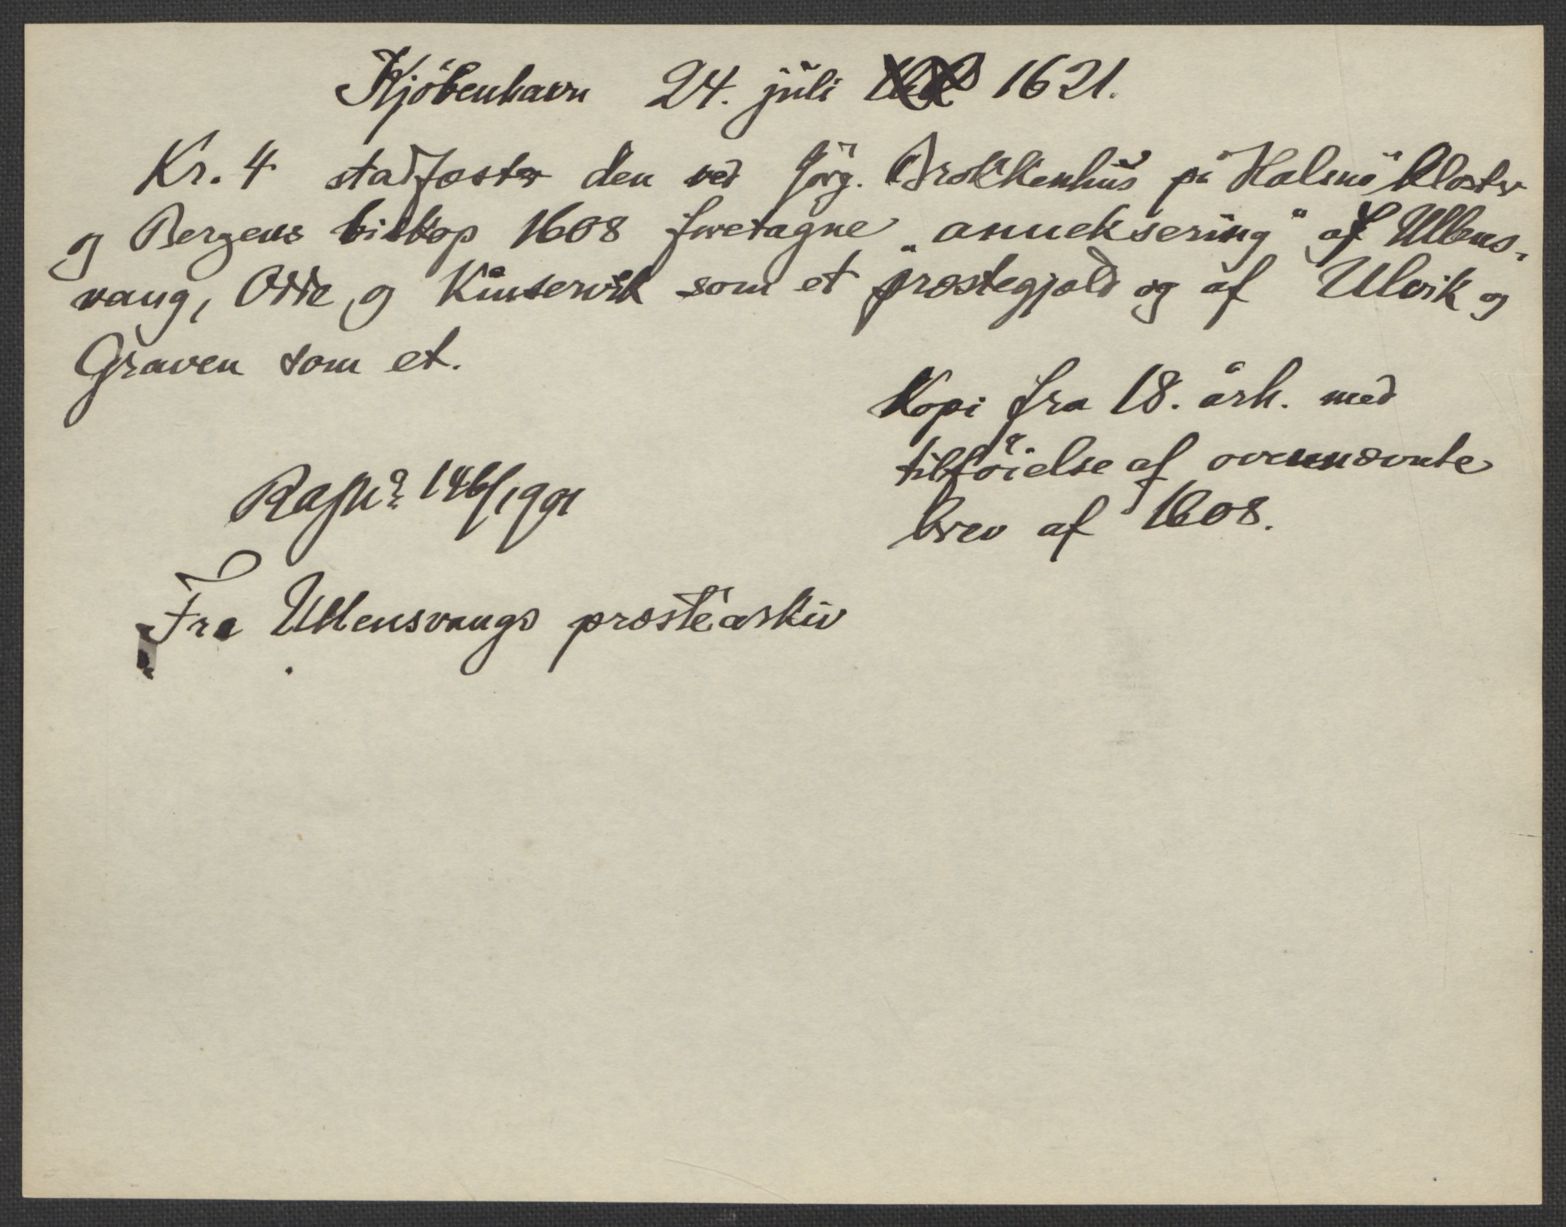 Kjöbenhavn 24. juli 1621.
Kr. 4 stadfæster den ved Jörg. Brokkenhus på Halsnö kloster
og Bergens biskop 1608 foretagne „anneksering" af Ullens-
vang, Odde, og Kinservik som et præstegjæld og af Ulvik og
Graven som et.
Kopi fra 18. årh. med
tilföielse af ovennævnte
brev af 1608.
146/1901
Fra Ullensvangs præstearkiv